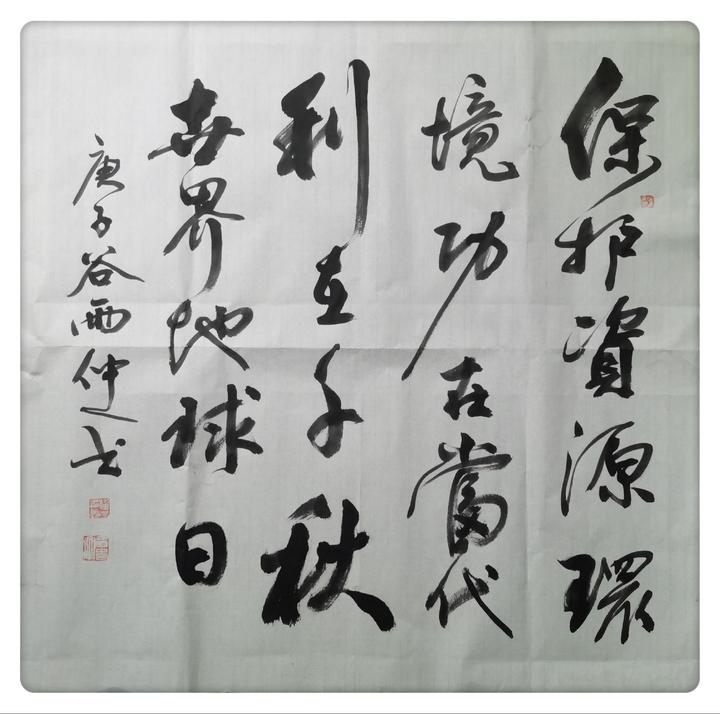 保护資源環
境功在當代
利在千秋
世界地球日
庚子谷雨仲達书